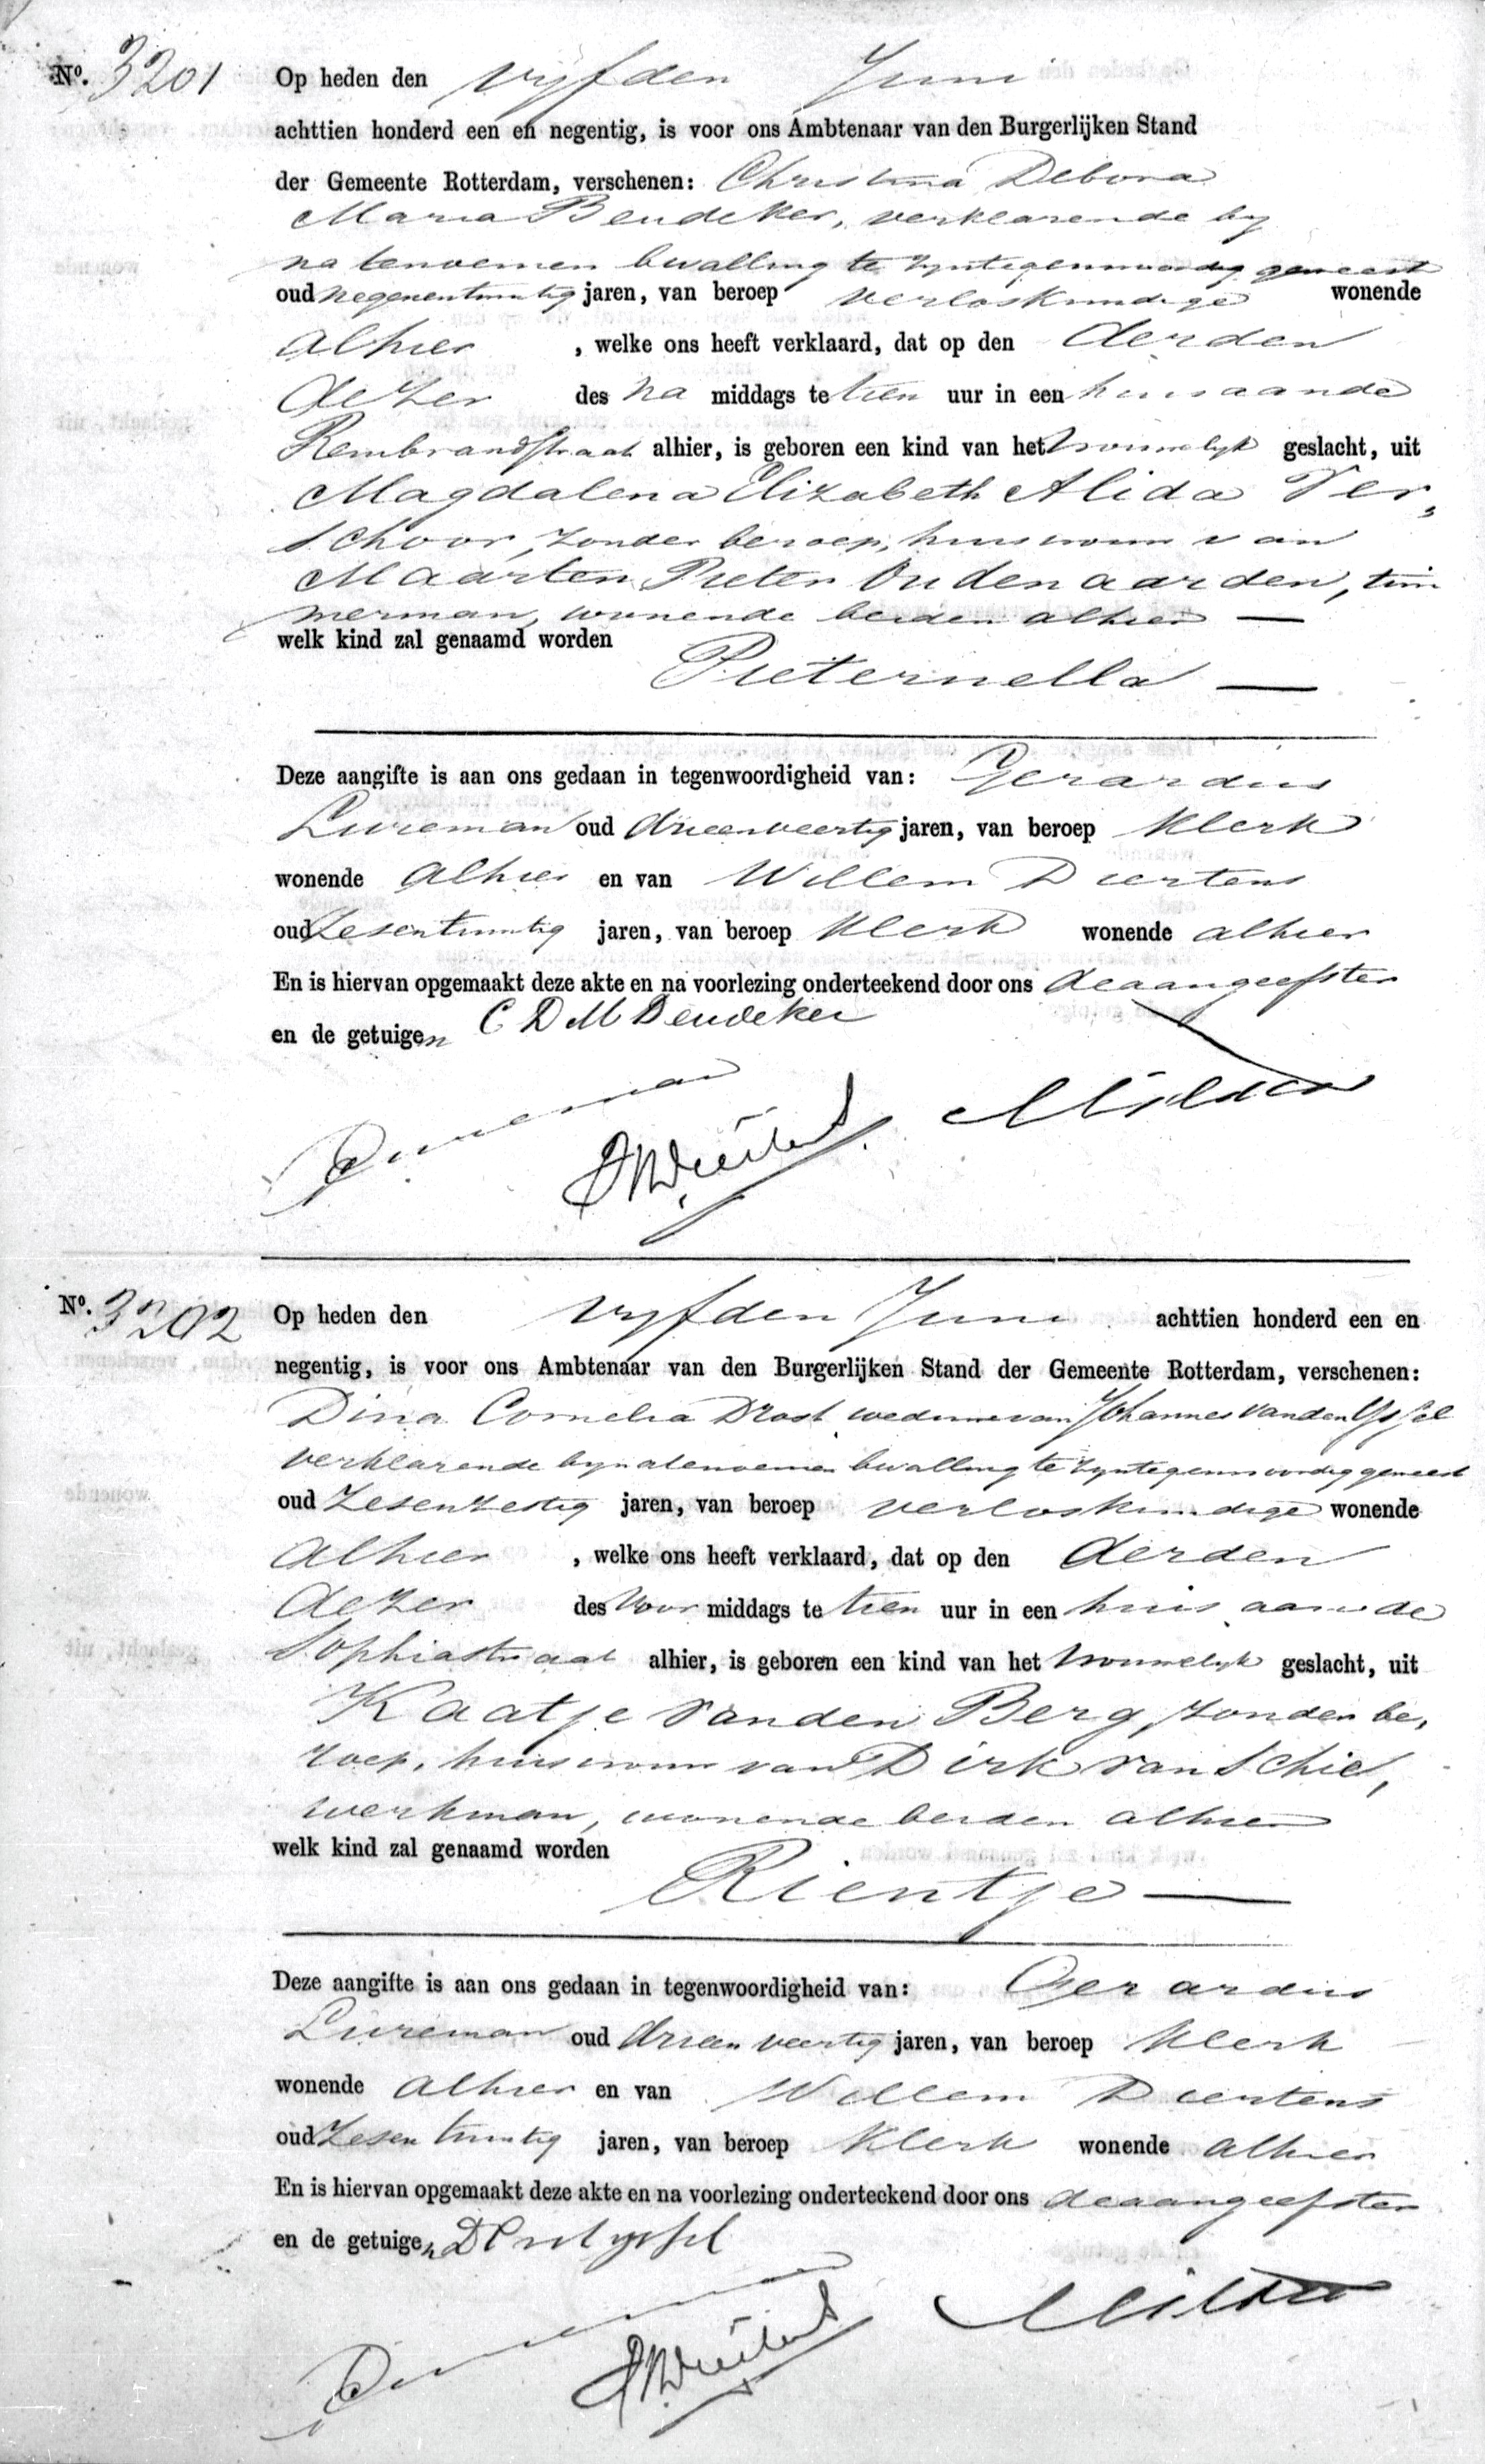 No. 3201 Op heden den vijfden Juni
achttien honderd een en negentig, is voor ons Ambtenaar van den Burgerlijken Stand
der Gemeente Rotterdam, verschenen: Christina Debora
Maria Beudeker, verklarende by
na tenoemen bevalling te zyn tegenwoordig geweest
oud negenentwintig jaren, van beroep verloskundige wonende
alhier , welke ons heeft verklaard, dat op den derden
dezer des na middags te tien uur in een huis aan de
Rembrandstraat alhier, is geboren een kind van het vrouwelyk geslacht, uit
Magdalena Elizabeth Alida Ver,
schoor, zonder beroep, huisvrouw van
Maarten Pieter Oudenaarden, tim
merman, wonende beiden alhier
welk kind zal genaamd worden
Pieternella
Deze aangifte is aan ons gedaan in tegenwoordigheid van: Gerardus
Lureman oud drieenveertig jaren, van beroep klerk
wonende alhier en van Willem Diertens
oud zesentwintig jaren, van beroep klerk wonende alhier
En is hiervan opgemaakt deze akte en na voorlezing onderteekend door ons de aangeefster
en de getuigen C D M Beudeker
No. 3202 Op heden den vyfden Juni achttien honderd een en
negentig, is voor ons Ambtenaar van den Burgerlijken Stand der Gemeente Rotterdam, verschenen:
Dina Cornelia Drost weduwe van Johannes van den Yssel
verklarende by na tenoemen bevalling te zyn tegenwoordig geweest
oud zesenzestig jaren, van beroep verloskundige wonende
alhier , welke ons heeft verklaard, dat op den derden
dezer des voor middags te tien uur in een huis aan de
Sophiastraat alhier, is geboren een kind van het vrouwelyk geslacht, uit
Kaatje van den Berg, zonder be,
roep, huisvrouw van Dirk van Schie,
werkman, wonende beiden alhier
welk kind zal genaamd worden
Rientje
Deze aangifte is aan ons gedaan in tegenwoordigheid van: Gerardus
Lureman oud drieenveertig jaren, van beroep klerk
wonende alhier en van Willem Diertens
oud zesentwintig jaren, van beroep klerk wonende alhier
En is hiervan opgemaakt deze akte en na voorlezing onderteekend door ons de aangeefster
en de getuigen